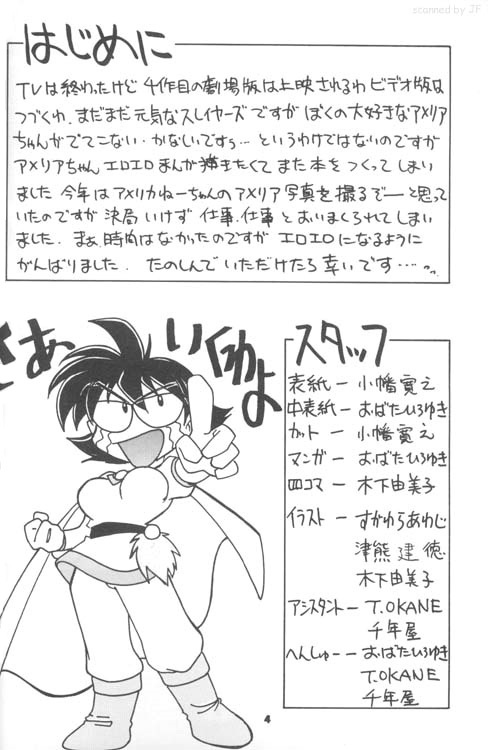 scanned by JF
はじめに
TVは終わったけど 4作目の劇場版は上映されるわ ビデオ版は
つづくわ、まだまだ元気なスレイヤーズですが ぼくの大好きなアメリア
ちゃんがでてこない・かなしいですぅ…というわけではないのですが
アメリアちゃん エロエロまんが描きたくて また本をつくってしまい
ました 今年はアメリカねーちゃんのアメリア写真を撮るぞーと思って
いたのですが 決局いけず 仕事、仕事とおいまくられてしまい
ました. まぁ、時間はなかったのですが エロエロになるように
がんばりました. たのしんでいただけたら幸いです……
さぁ いくわよ
スタッフ
表紙ー 小幡寛之
中表紙ー おばたひろゆき
カットー 小幡寛之
マンガー おばたひろゆき
四コマー 木下由美子
イラストー すがわらあわじ
津熊建徳
木下由美子
アシスタントー T.OKANE
千年屋
へんしゅーー おばたひろゆき
T.OKANE
千年屋
4